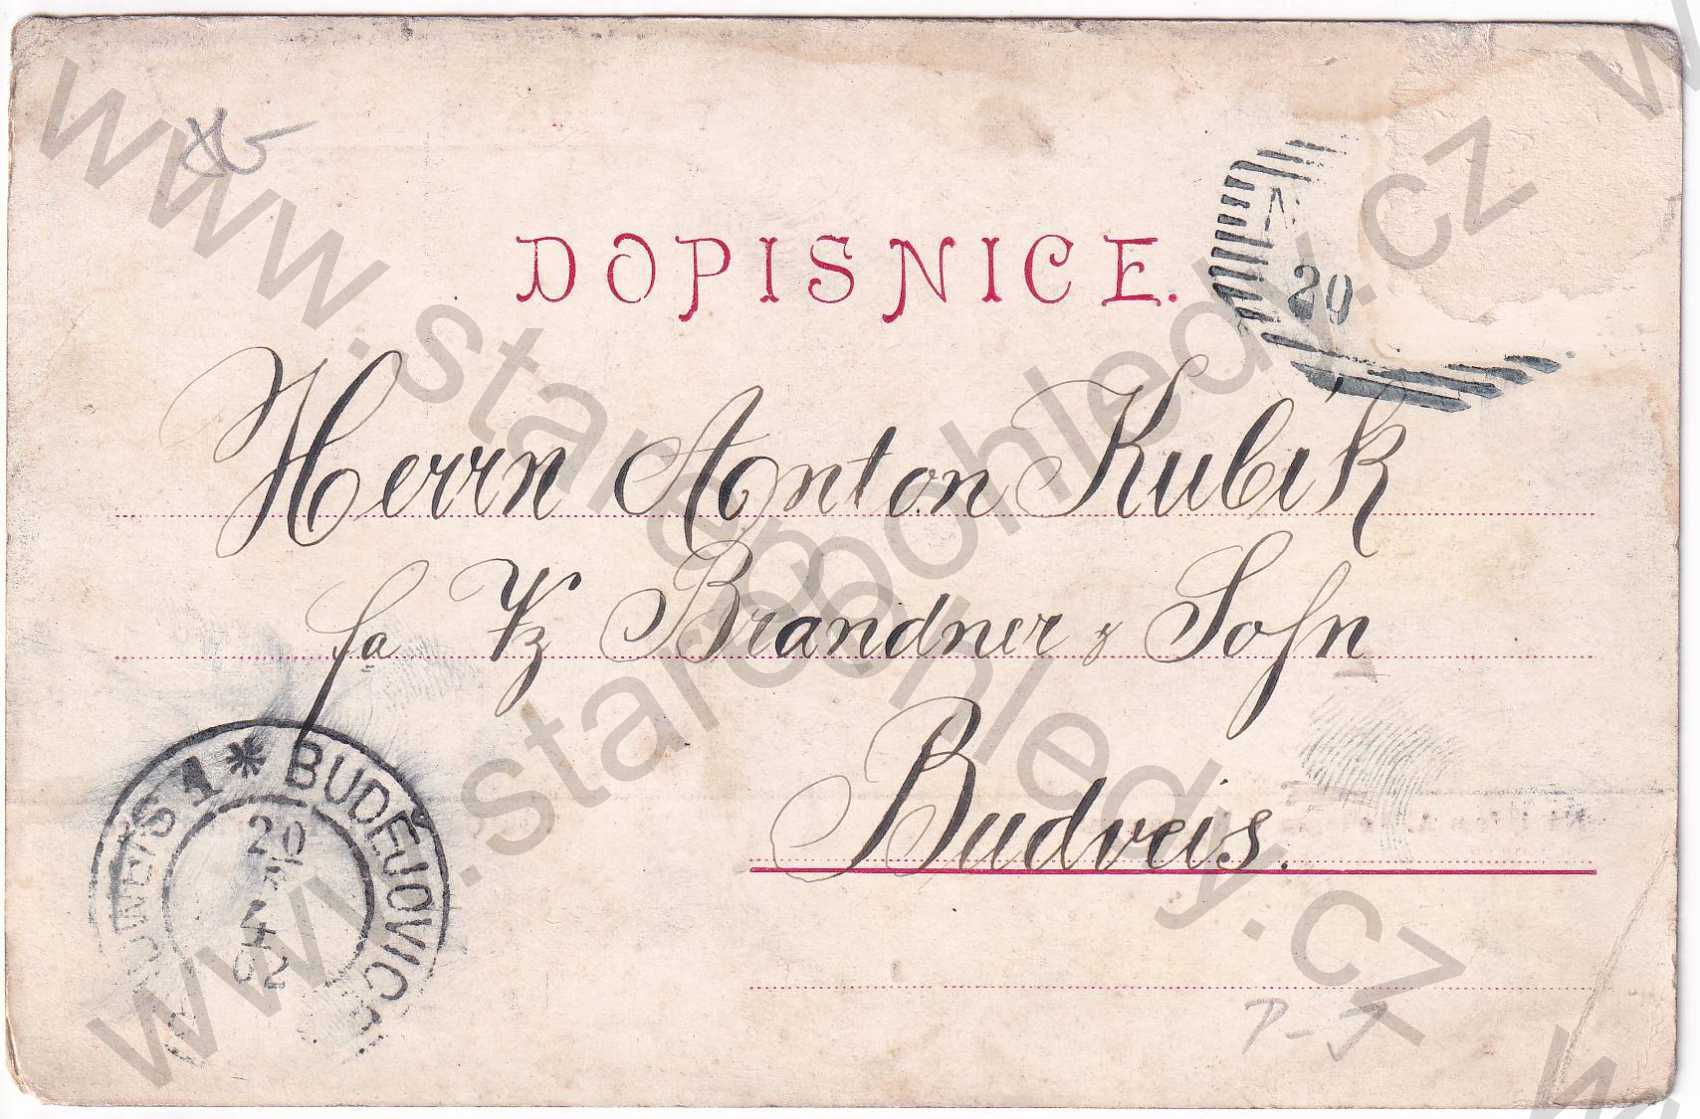 DOPISNICE.
20
Herrn Anton Kubik
fa Fz Brandner & Sohn
Budveis.
BUDWEIS 1 * BUDĚJOVICE
20
4
02
P-J
www.staropohledy.cz
www.staropohledy.cz